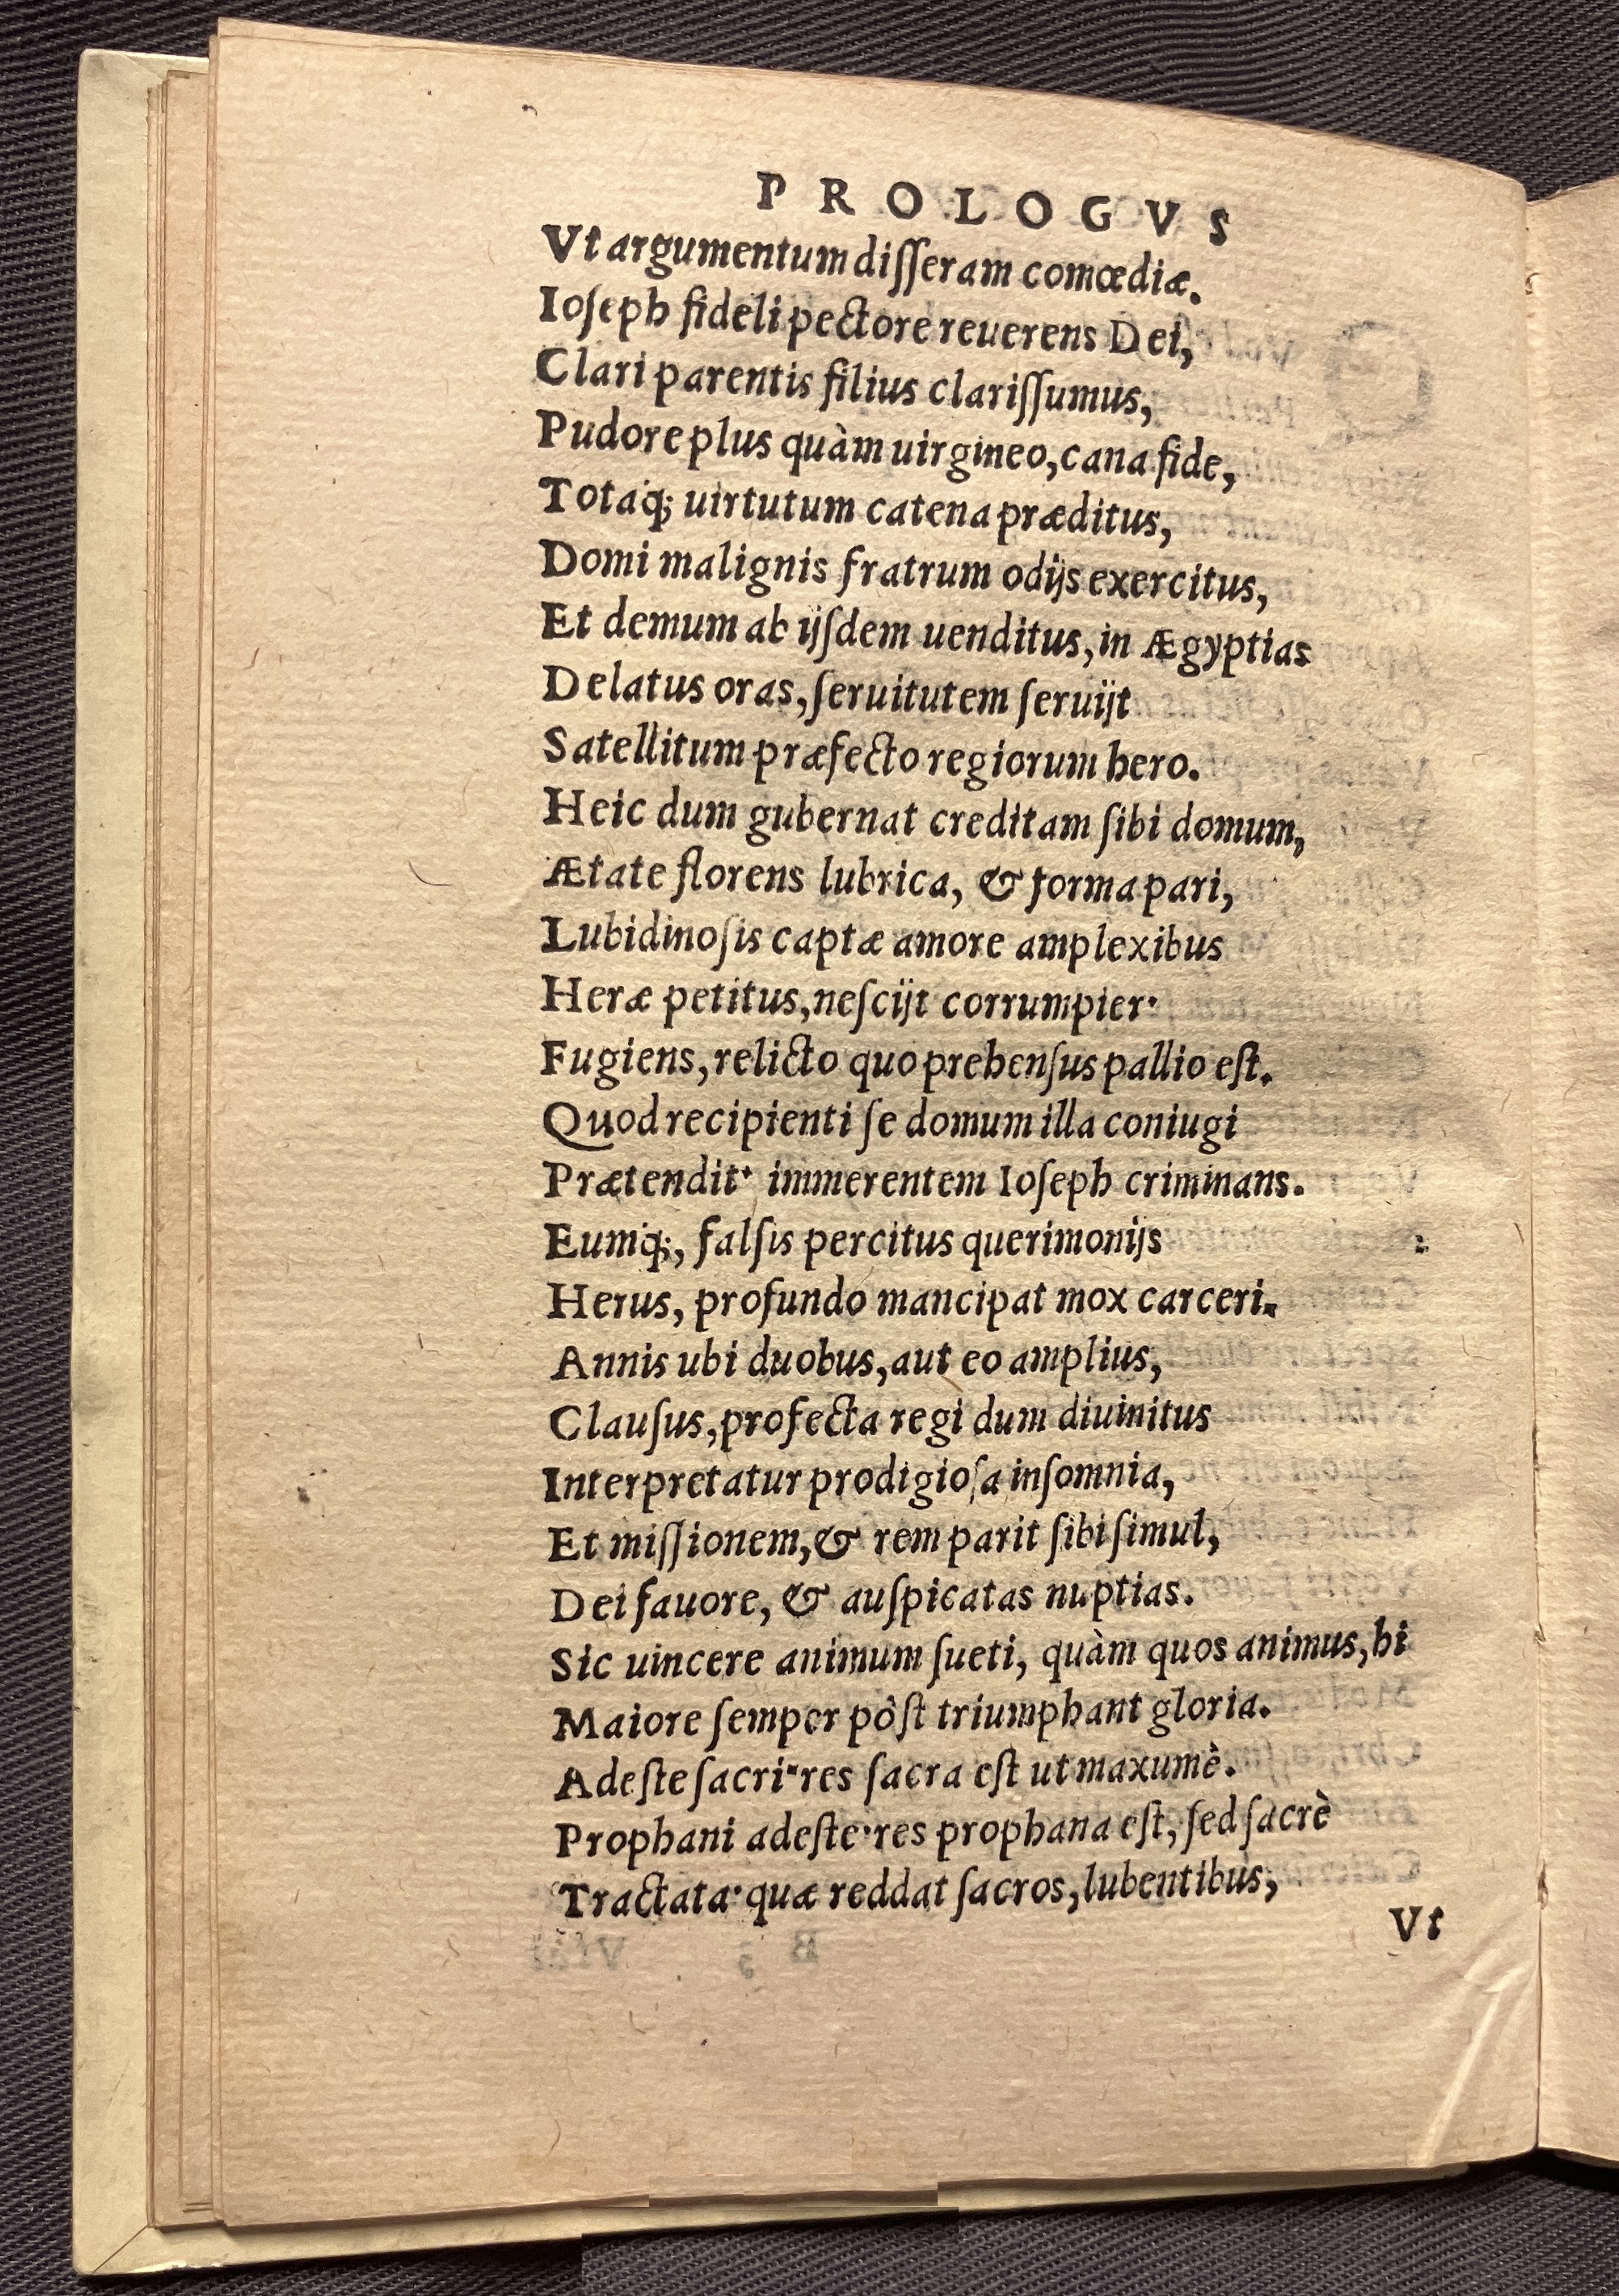 PROLOGVS
Vt argumentum diſſeram comœdiæ.
Ioſeph fideli pectore reuerens Dei,
Clari parentis filius clariſſumus,
Pudore plus quàm uirgineo, cana fide,
Totaq́; uirtutum catena præditus,
Domi malignis fratrum odijs exercitus,
Et demum ab ijſdem uenditus, in Ægyptias
Delatus oras, ſeruitutem ſeruijt
Satellitum præfecto regiorum hero.
Heic dum gubernat creditam ſibi domum,
Ætate florens lubrica, & forma pari,
Lubidinoſis captæ amore amplexibus
Heræ petitus, neſcijt corrumpier·
Fugiens, relicto quo prehenſus pallio eſt.
Quod recipienti ſe domum illa coniugi
Prætendit· immerentem Ioſeph criminans.
Eumq́;, falſis percitus querimonijs
Herus, profundo mancipat mox carceri.
Annis ubi duobus, aut eo amplius,
Clauſus, profecta regi dum diuinitus
Interpretatur prodigioſa inſomnia,
Et miſſionem, & rem parit ſibi ſimul,
Dei fauore, & auſpicatas nuptias.
Sic uincere animum ſueti, quàm quos animus, hi
Maiore ſemper pòſt triumphant gloria.
Adeſte ſacri· res ſacra eſt ut maxumè.
Prophani adeſte· res prophana eſt, ſed ſacrè
Tractata· quæ reddat ſacros, lubentibus,
Vt